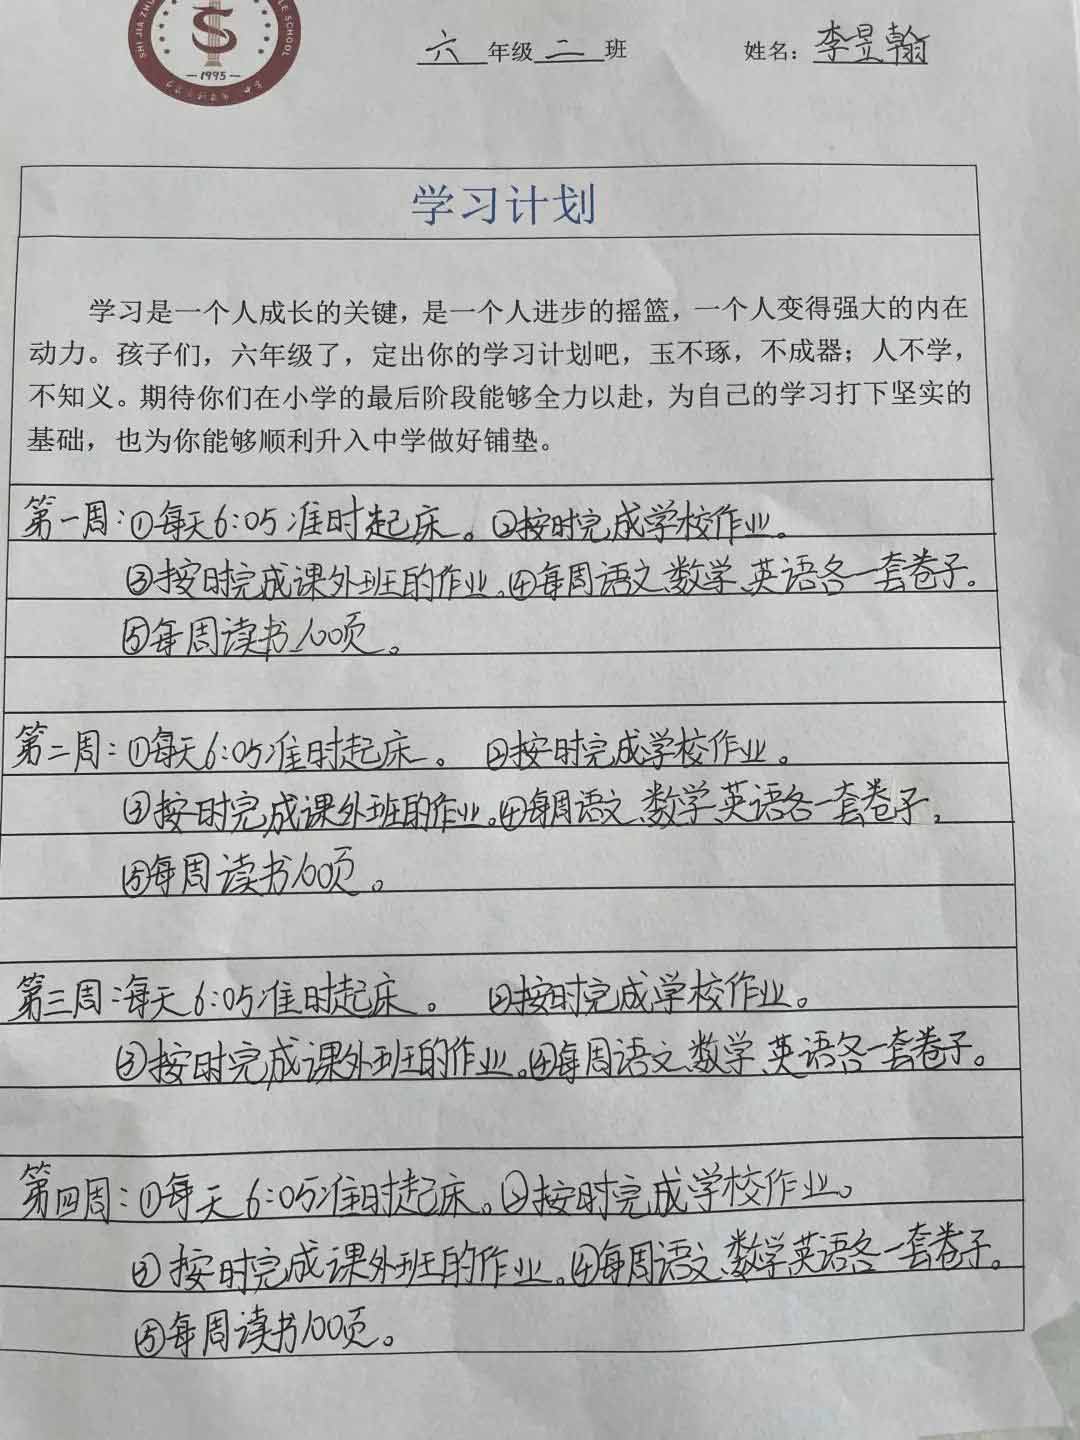 SHI JIA ZHU
LE SCHOOL
S
1995
六年级二班 姓名：李昱翰
学习计划
学习是一个人成长的关键，是一个人进步的摇篮，一个人变得强大的内在
动力。孩子们，六年级了，定出你的学习计划吧，玉不琢，不成器；人不学，
不知义。期待你们在小学的最后阶段能够全力以赴，为自己的学习打下坚实的
基础，也为你能够顺利升入中学做好铺垫。
第一周：①每天6:05准时起床。②按时完成学校作业。
③按时完成课外班的作业。④每周语文、数学、英语各一套卷子。
⑤每周读书100页。
第二周：①每天6:05准时起床。②按时完成学校作业。
③按时完成课外班的作业。④每周语文、数学、英语各一套卷子，
⑤每周读书100页。
第三周：每天6:05准时起床。②按时完成学校作业。
③按时完成课外班的作业。④每周语文、数学、英语各一套卷子。
第四周：①每天6:05准时起床。②按时完成学校作业。
③按时完成课外班的作业。④每周语文、数学英语各一套卷子。
⑤每周读书100页。